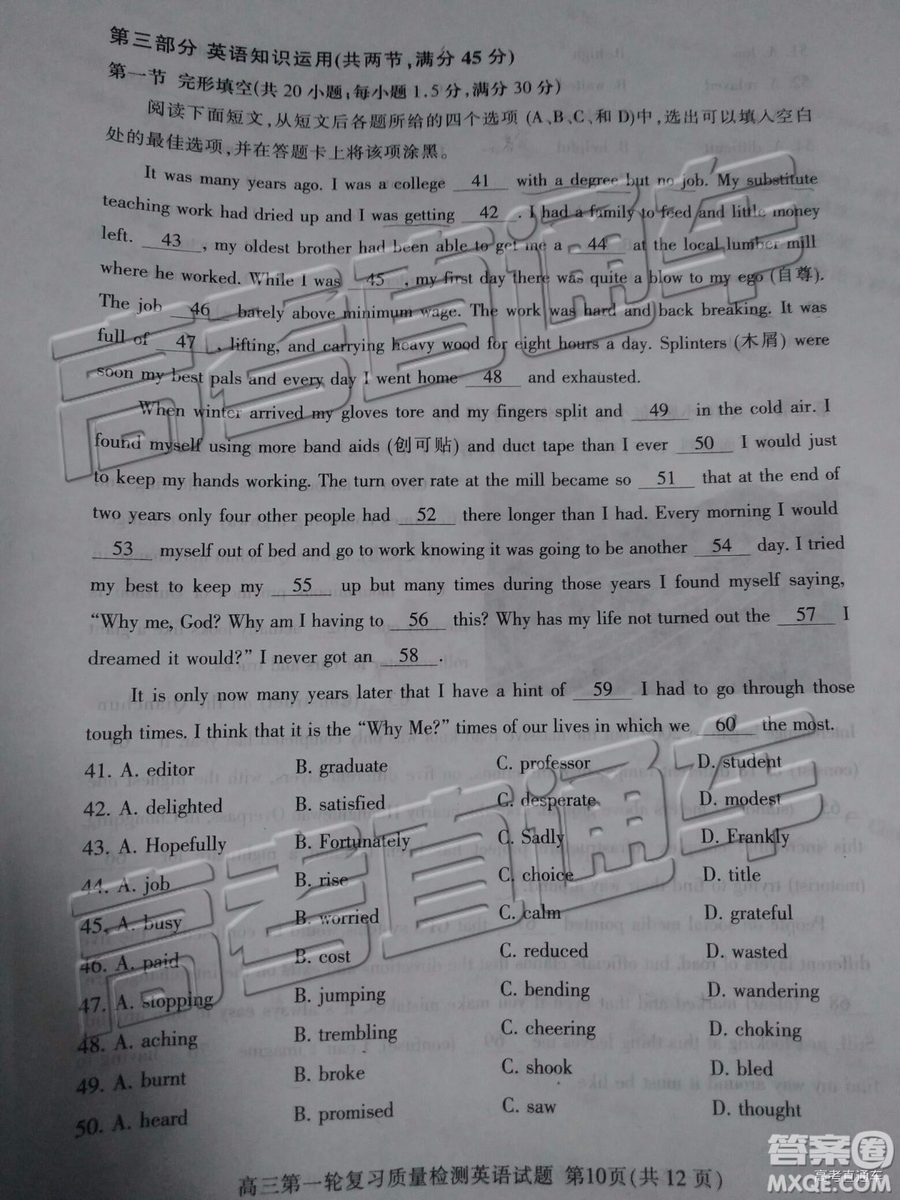 第三部分 英语知识运用(共两节,满分 45 分)
第一节 完形填空(共 20 小题;每小题 1.5 分,满分 30 分)
阅读下面短文,从短文后各题所给的四个选项 (A、B、C、和 D)中,选出可以填入空白
处的最佳选项,并在答题卡上将该项涂黑。
It was many years ago. I was a college 41 with a degree but no job. My substitute
teaching work had dried up and I was getting 42 . I had a family to feed and little money
left. 43 , my oldest brother had been able to get me a 44 at the local lumber mill
where he worked. While I was 45 , my first day there was quite a blow to my ego (自尊).
The job 46 barely above minimum wage. The work was hard and back breaking. It was
full of 47 , lifting, and carrying heavy wood for eight hours a day. Splinters (木屑) were
soon my best pals and every day I went home 48 and exhausted.
When winter arrived my gloves tore and my fingers split and 49 in the cold air. I
found myself using more band aids (创可贴) and duct tape than I ever 50 I would just
to keep my hands working. The turn over rate at the mill became so 51 that at the end of
two years only four other people had 52 there longer than I had. Every morning I would
53 myself out of bed and go to work knowing it was going to be another 54 day. I tried
my best to keep my 55 up but many times during those years I found myself saying,
“Why me, God? Why am I having to 56 this? Why has my life not turned out the 57 I
dreamed it would?” I never got an 58 .
It is only now many years later that I have a hint of 59 I had to go through those
tough times. I think that it is the “Why Me?” times of our lives in which we 60 the most.
41. A. editor B. graduate C. professor D. student
42. A. delighted B. satisfied C. desperate D. modest
43. A. Hopefully B. Fortunately C. Sadly D. Frankly
44. A. job B. rise C. choice D. title
45. A. busy B. worried C. calm D. grateful
46. A. paid B. cost C. reduced D. wasted
47. A. stopping B. jumping C. bending D. wandering
48. A. aching B. trembling C. cheering D. choking
49. A. burnt B. broke C. shook D. bled
50. A. heard B. promised C. saw D. thought
高三第一轮复习质量检测英语试题 第10页(共 12 页)
高考直通车
高考直通车
答案圈
高考直通车
MXQE.COM